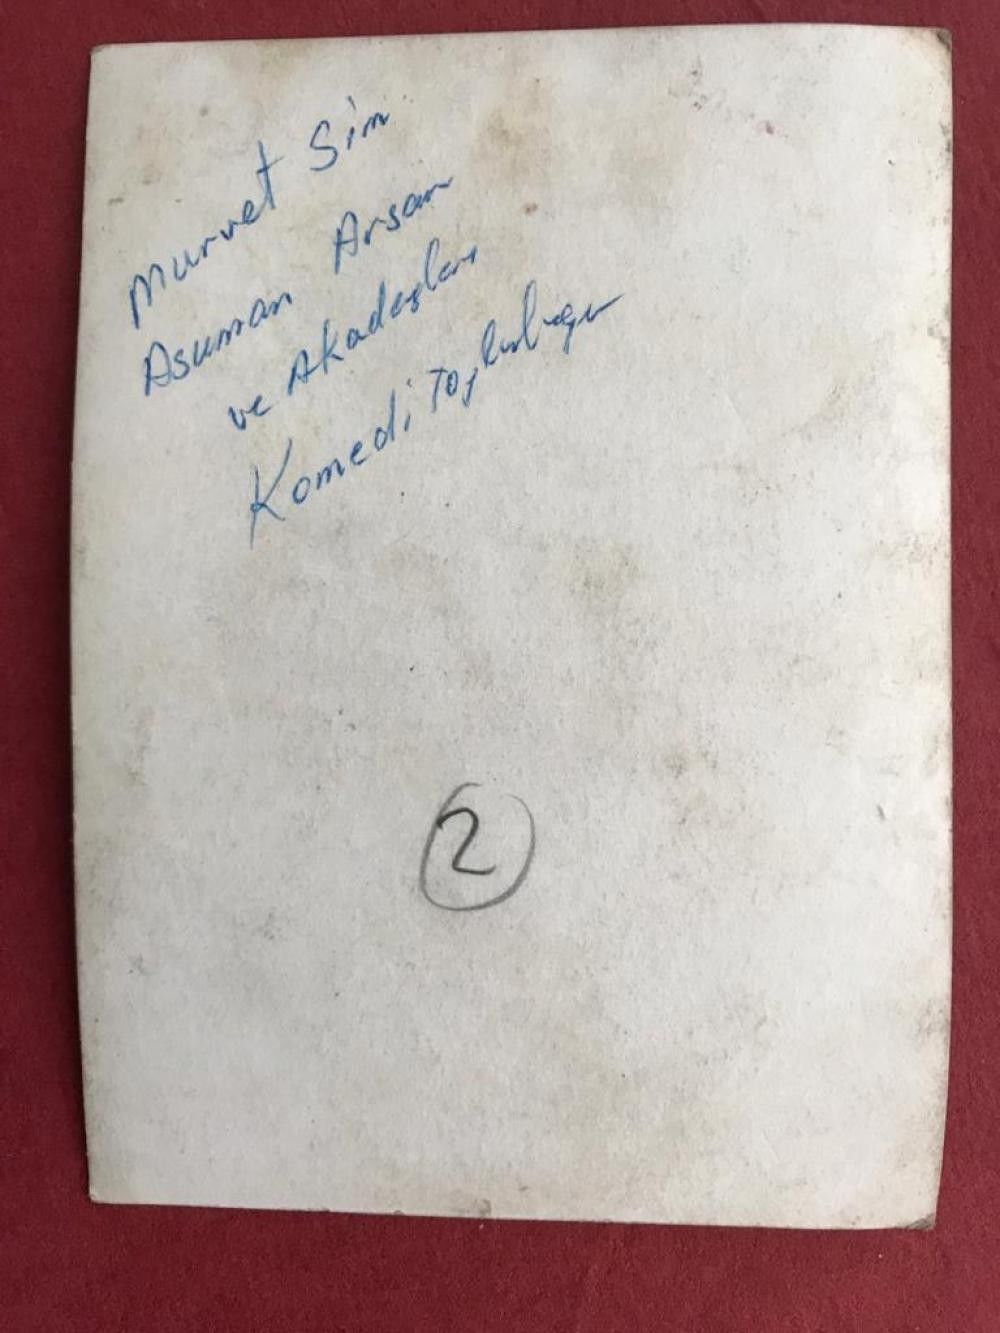 Murvet Sim
Asuman Arsan
ve Akadaşları
Komedi Topluluğu
2